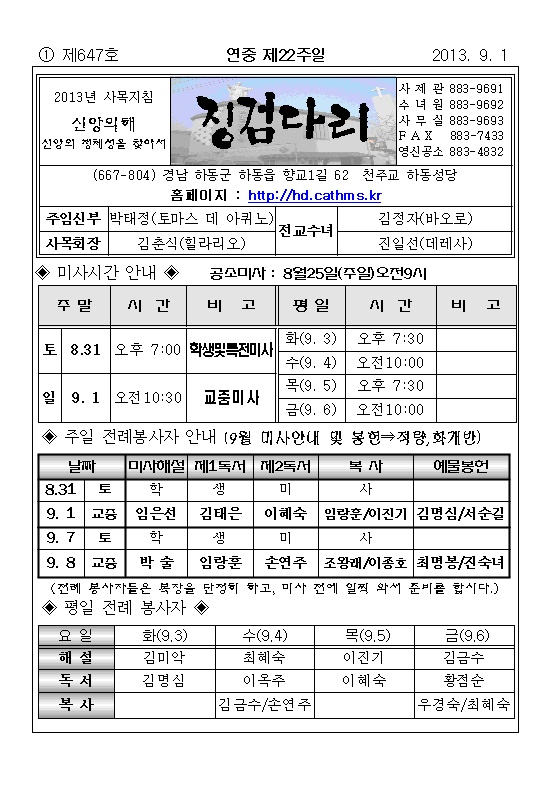 ① 제647호 연중 제22주일 2013. 9. 1
2013년 사목지침
신앙의해
신앙의 정체성을 찾아서
징검다리
사 제 관 883-9691
수 녀 원 883-9692
사 무 실 883-9693
F A X 883-7433
영신공소 883-4832
(667-804) 경남 하동군 하동읍 향교1길 62 천주교 하동성당
홈페이지 : http://hd.cathms.kr
주임신부 박태정(토마스 데 아퀴노) 전교수녀 김정자(바오로)
사목회장 김춘식(힐라리오) 진일선(데레사)
◈ 미사시간 안내 ◈ 공소미사 : 8월25일(주일)오전9시
주 말 시 간 비 고 평 일 시 간 비 고
토 8.31 오후 7:00 학생및특전미사 화(9. 3) 오후 7:30
수(9. 4) 오전10:00
일 9. 1 오전10:30 교중미사 목(9. 5) 오후 7:30
금(9. 6) 오전10:00
◈ 주일 전례봉사자 안내 (9월 미사안내 및 봉헌⇒적량,화개반)
날짜 미사해설 제1독서 제2독서 복 사 예물봉헌
8.31 토 학 생 미 사
9. 1 교중 임은선 김태은 이혜숙 임랑훈/이진기 김명심/서순길
9. 7 토 학 생 미 사
9. 8 교중 박 술 임랑훈 손연주 조왕래/이종호 최명봉/진숙녀
(전례 봉사자들은 복장을 단정히 하고, 미사 전에 일찍 와서 준비를 합시다.)
◈ 평일 전례 봉사자 ◈
요 일 화(9.3) 수(9.4) 목(9.5) 금(9.6)
해 설 김미악 최혜숙 이진기 김금수
독 서 김명심 이옥주 이혜숙 황점순
복 사 김금수/손연주 우경숙/최혜숙